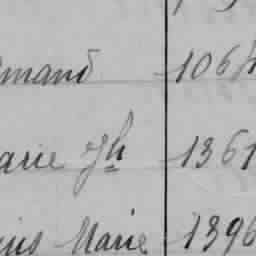 mand 1064
arie Jh 1361
uis Marie 1396